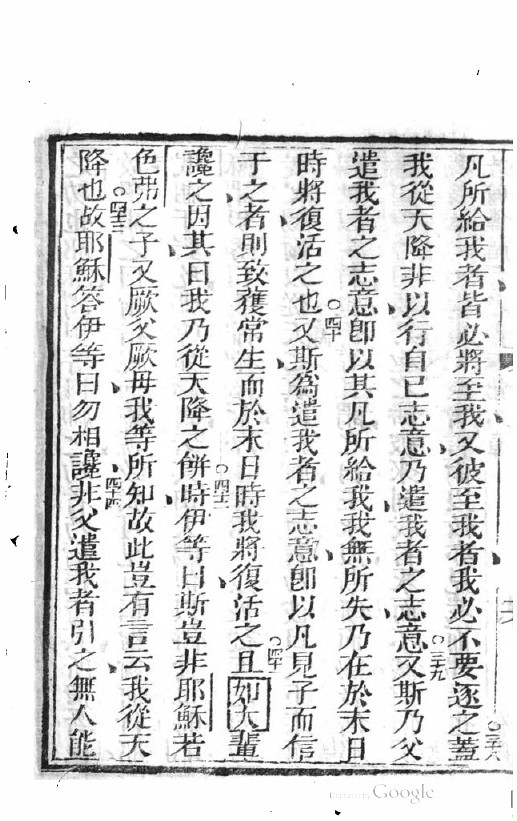 凡所給我者皆必將至我又彼至我者我必不要逐之蓋
三十八
我從天降非以行自己志意乃遣我者之志意又斯乃父
三十九
遣我者之志意卽以其凡所給我我無所失乃在於末日
時將復活之也又斯為遣我者之志意卽以凡見子而信
四十
于之者則致獲常生而於末日時我將復活之且如大輩
四十一
讒之因其曰我乃從天降之餅時伊等曰斯豈非耶穌若
四十二
色弗之子又厥父厥母我等所知故此豈有言云我從天
降也故耶穌答伊等曰勿相讒非父遣我者引之無人能
四十三
四十四
Digitized by Google